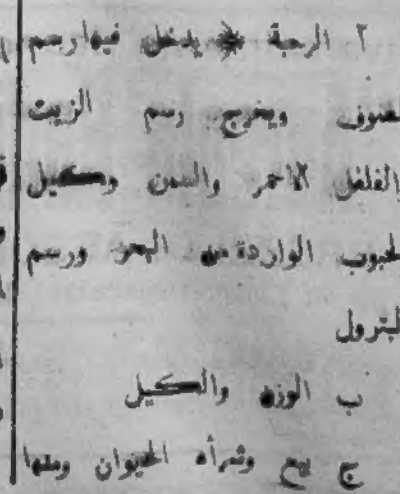 أ الرحبة يدخل فيها رسم
الصوف ويخرج رسم الزيت
والفلفل الاحمر والسمن وكيل
الحبوب الواردة من البحر ورسم
البترول
ب الوزن والكيل
ج بيع وشراء الحيوان ومنها